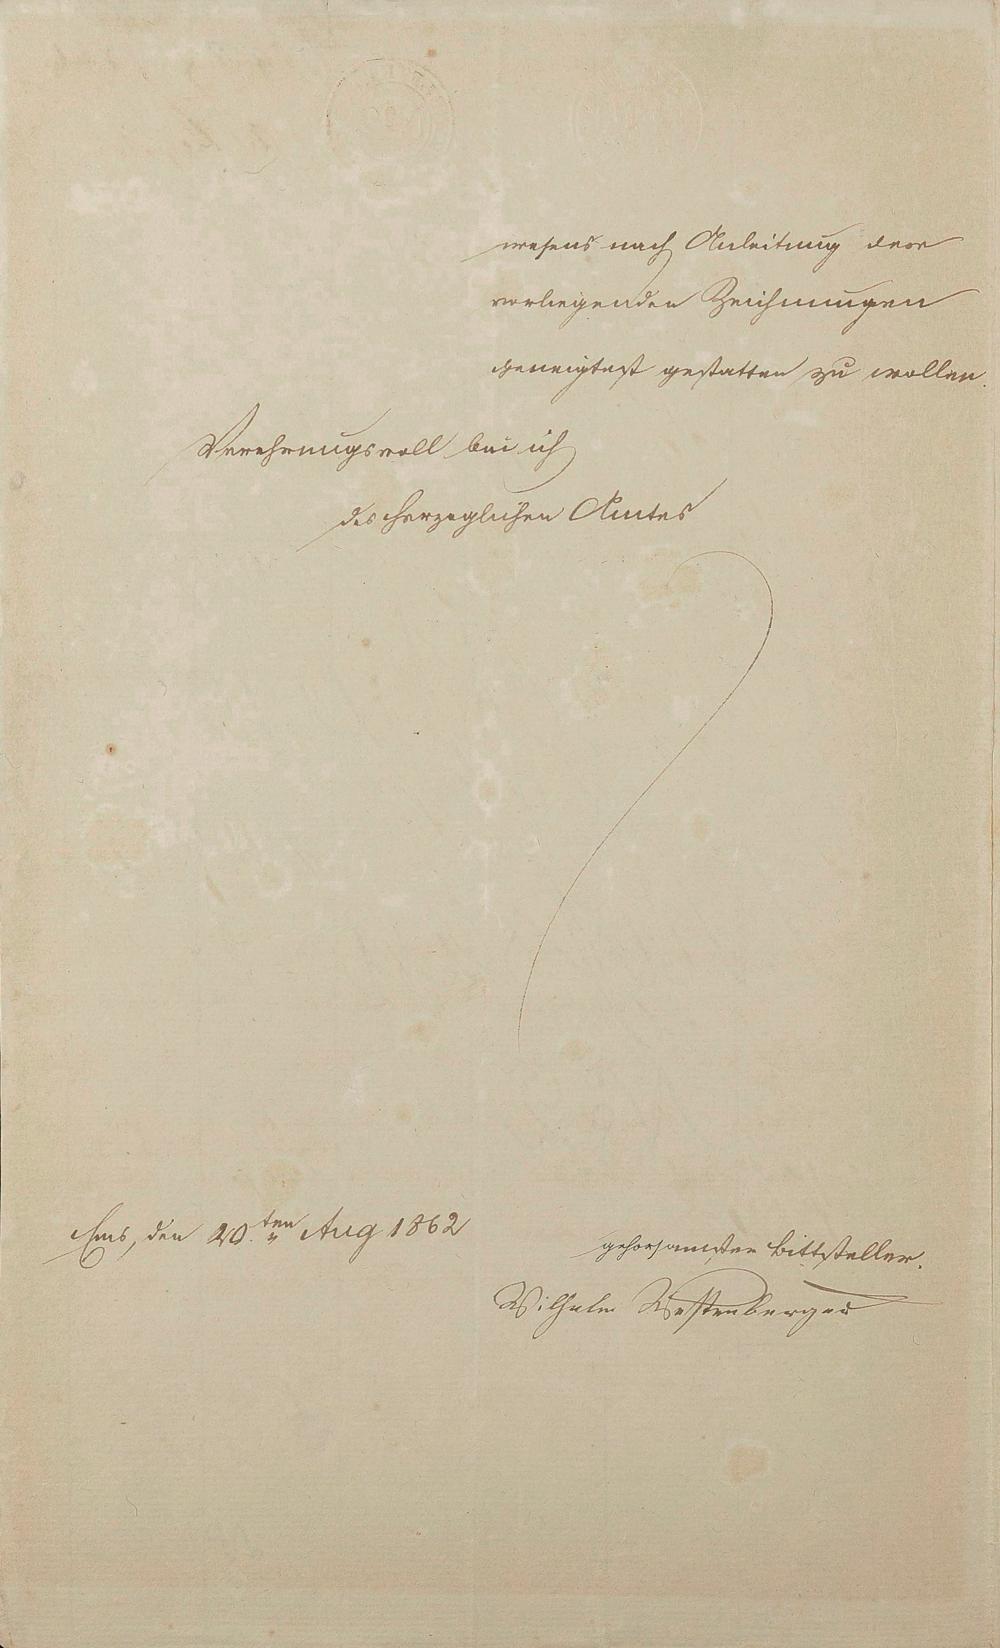 wesens nach Anleitung der
vorliegenden Zeichnungen
geneigtest gestatten zu wollen.
Verehrungsvoll bin ich
des herzoglichen Amtes
Ems, den 20.ten Aug 1862
gehorsamster Bittsteller.
Wilhelm Westenberger